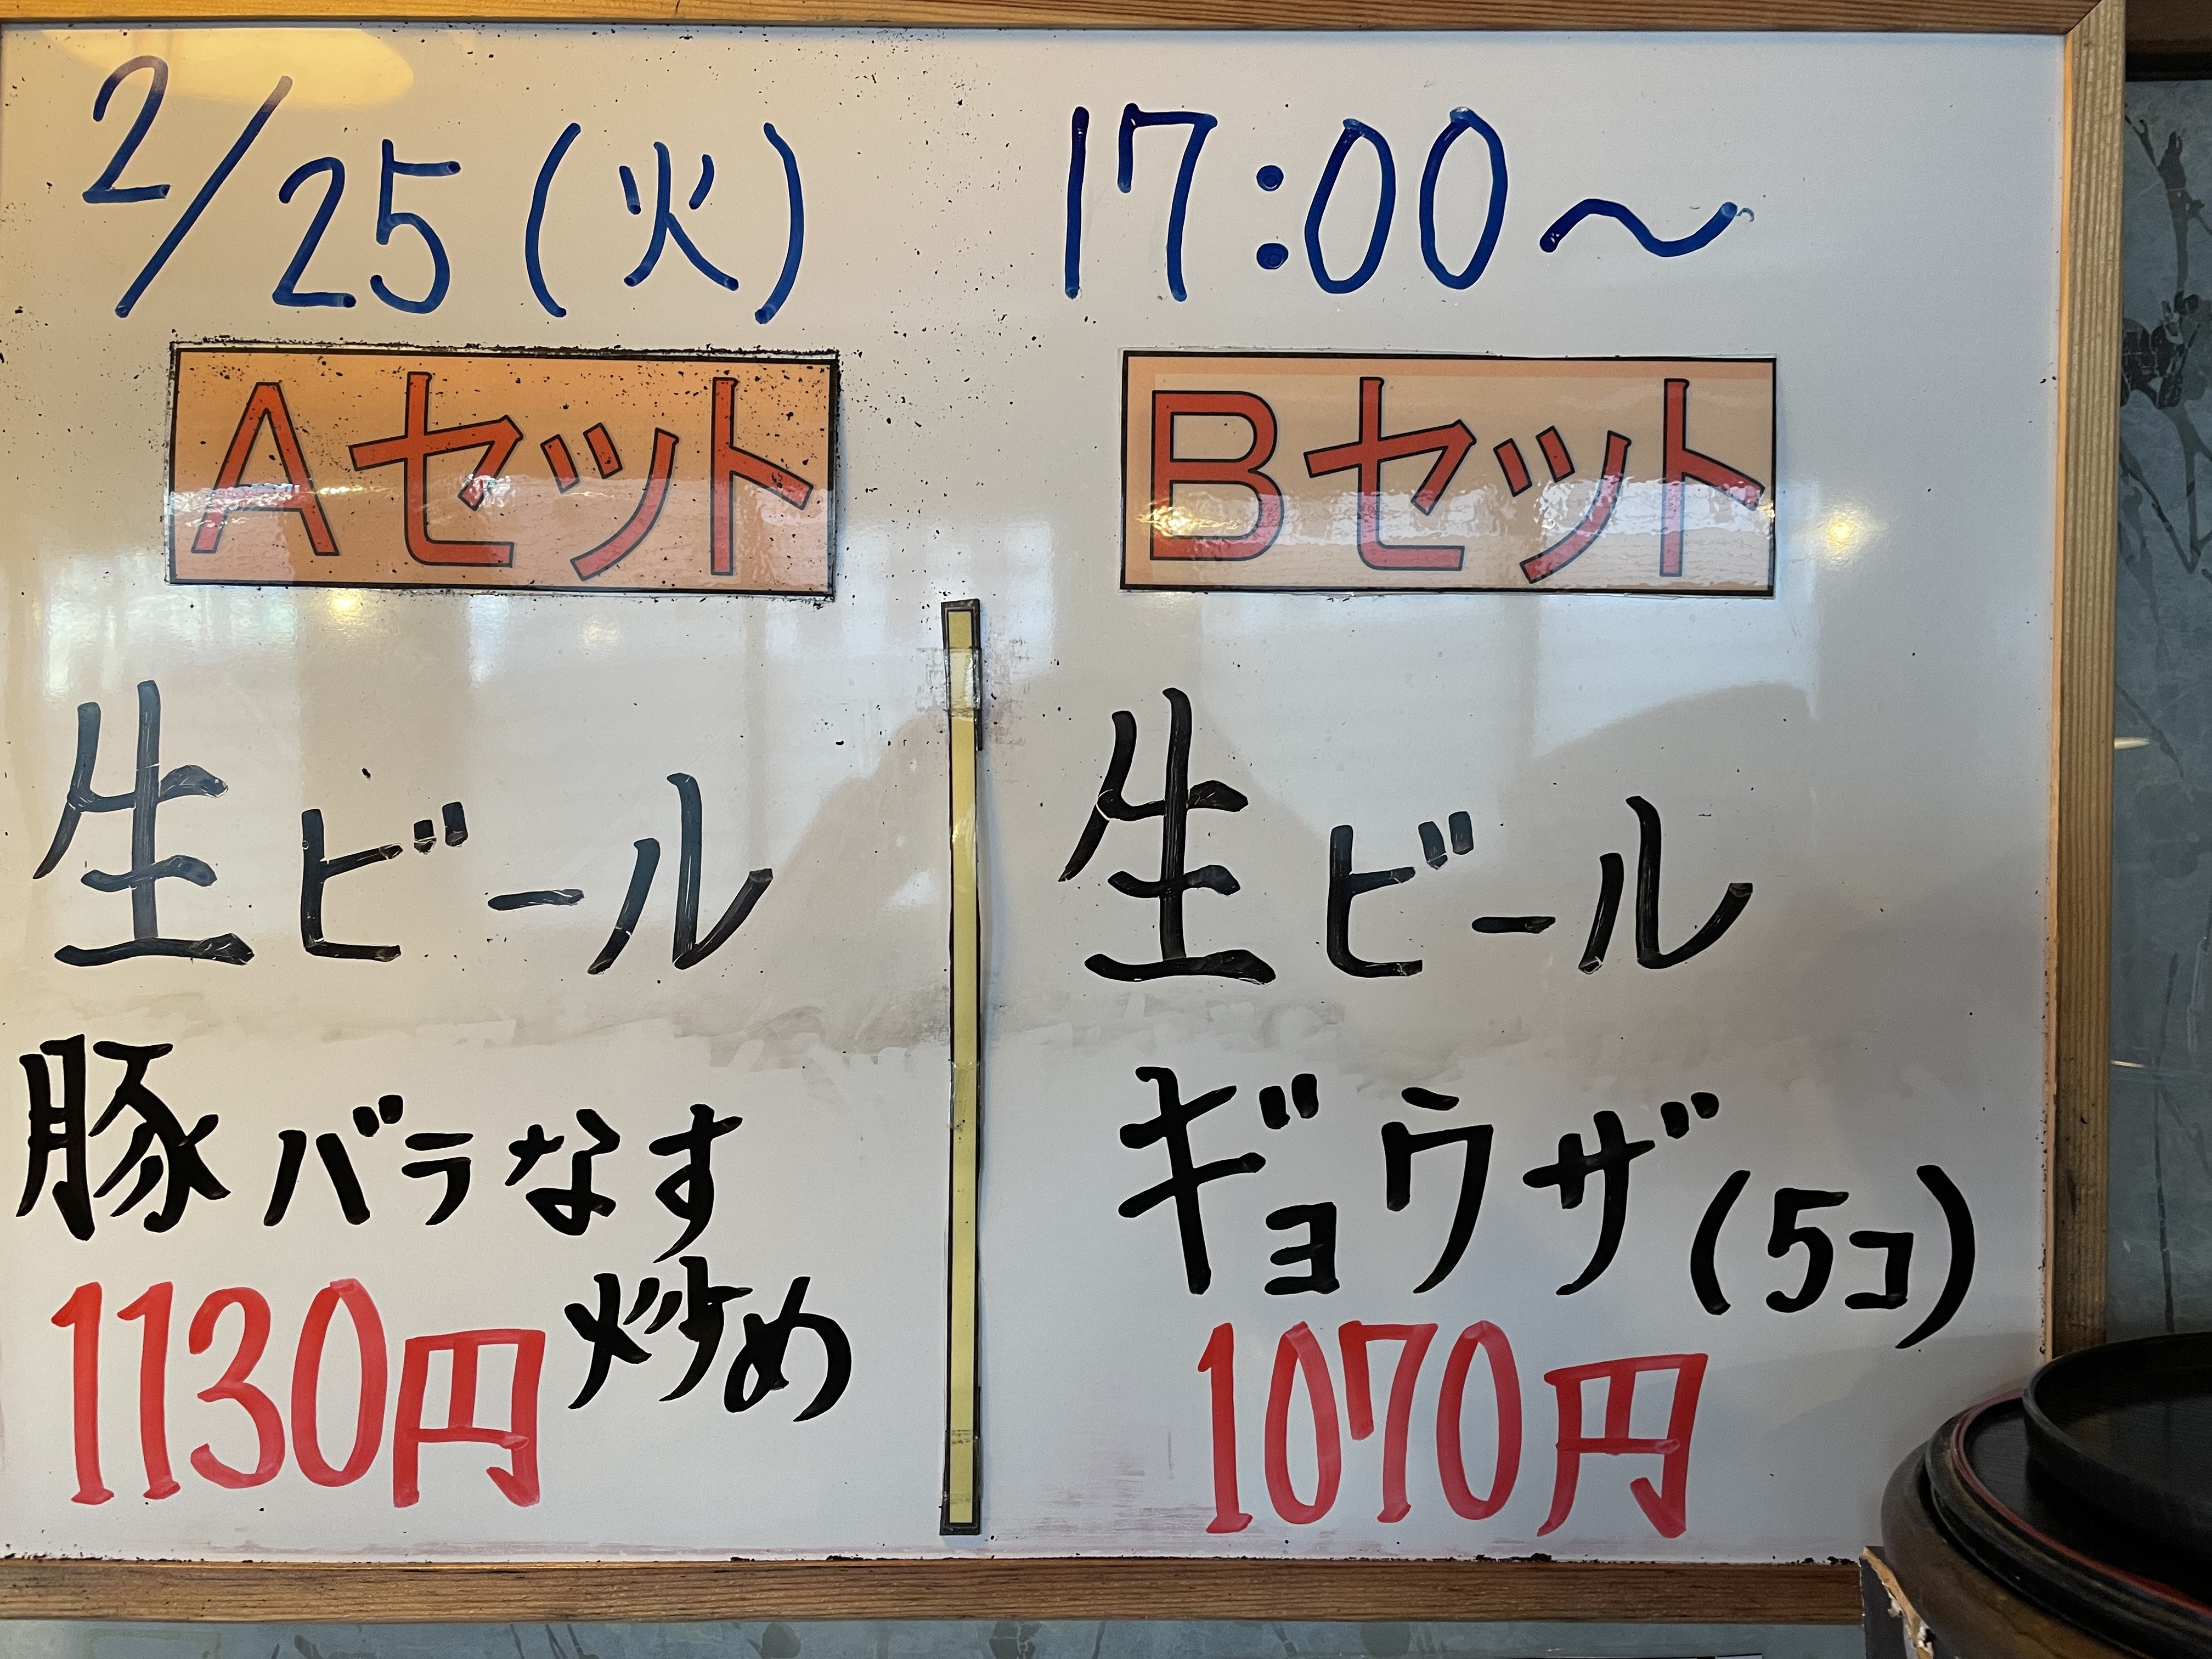 2/25(火) 17:00～
Aセット
生ビール
豚バラなす
炒め
1130円
Bセット
生ビール
ギョウザ(5コ)
1070円